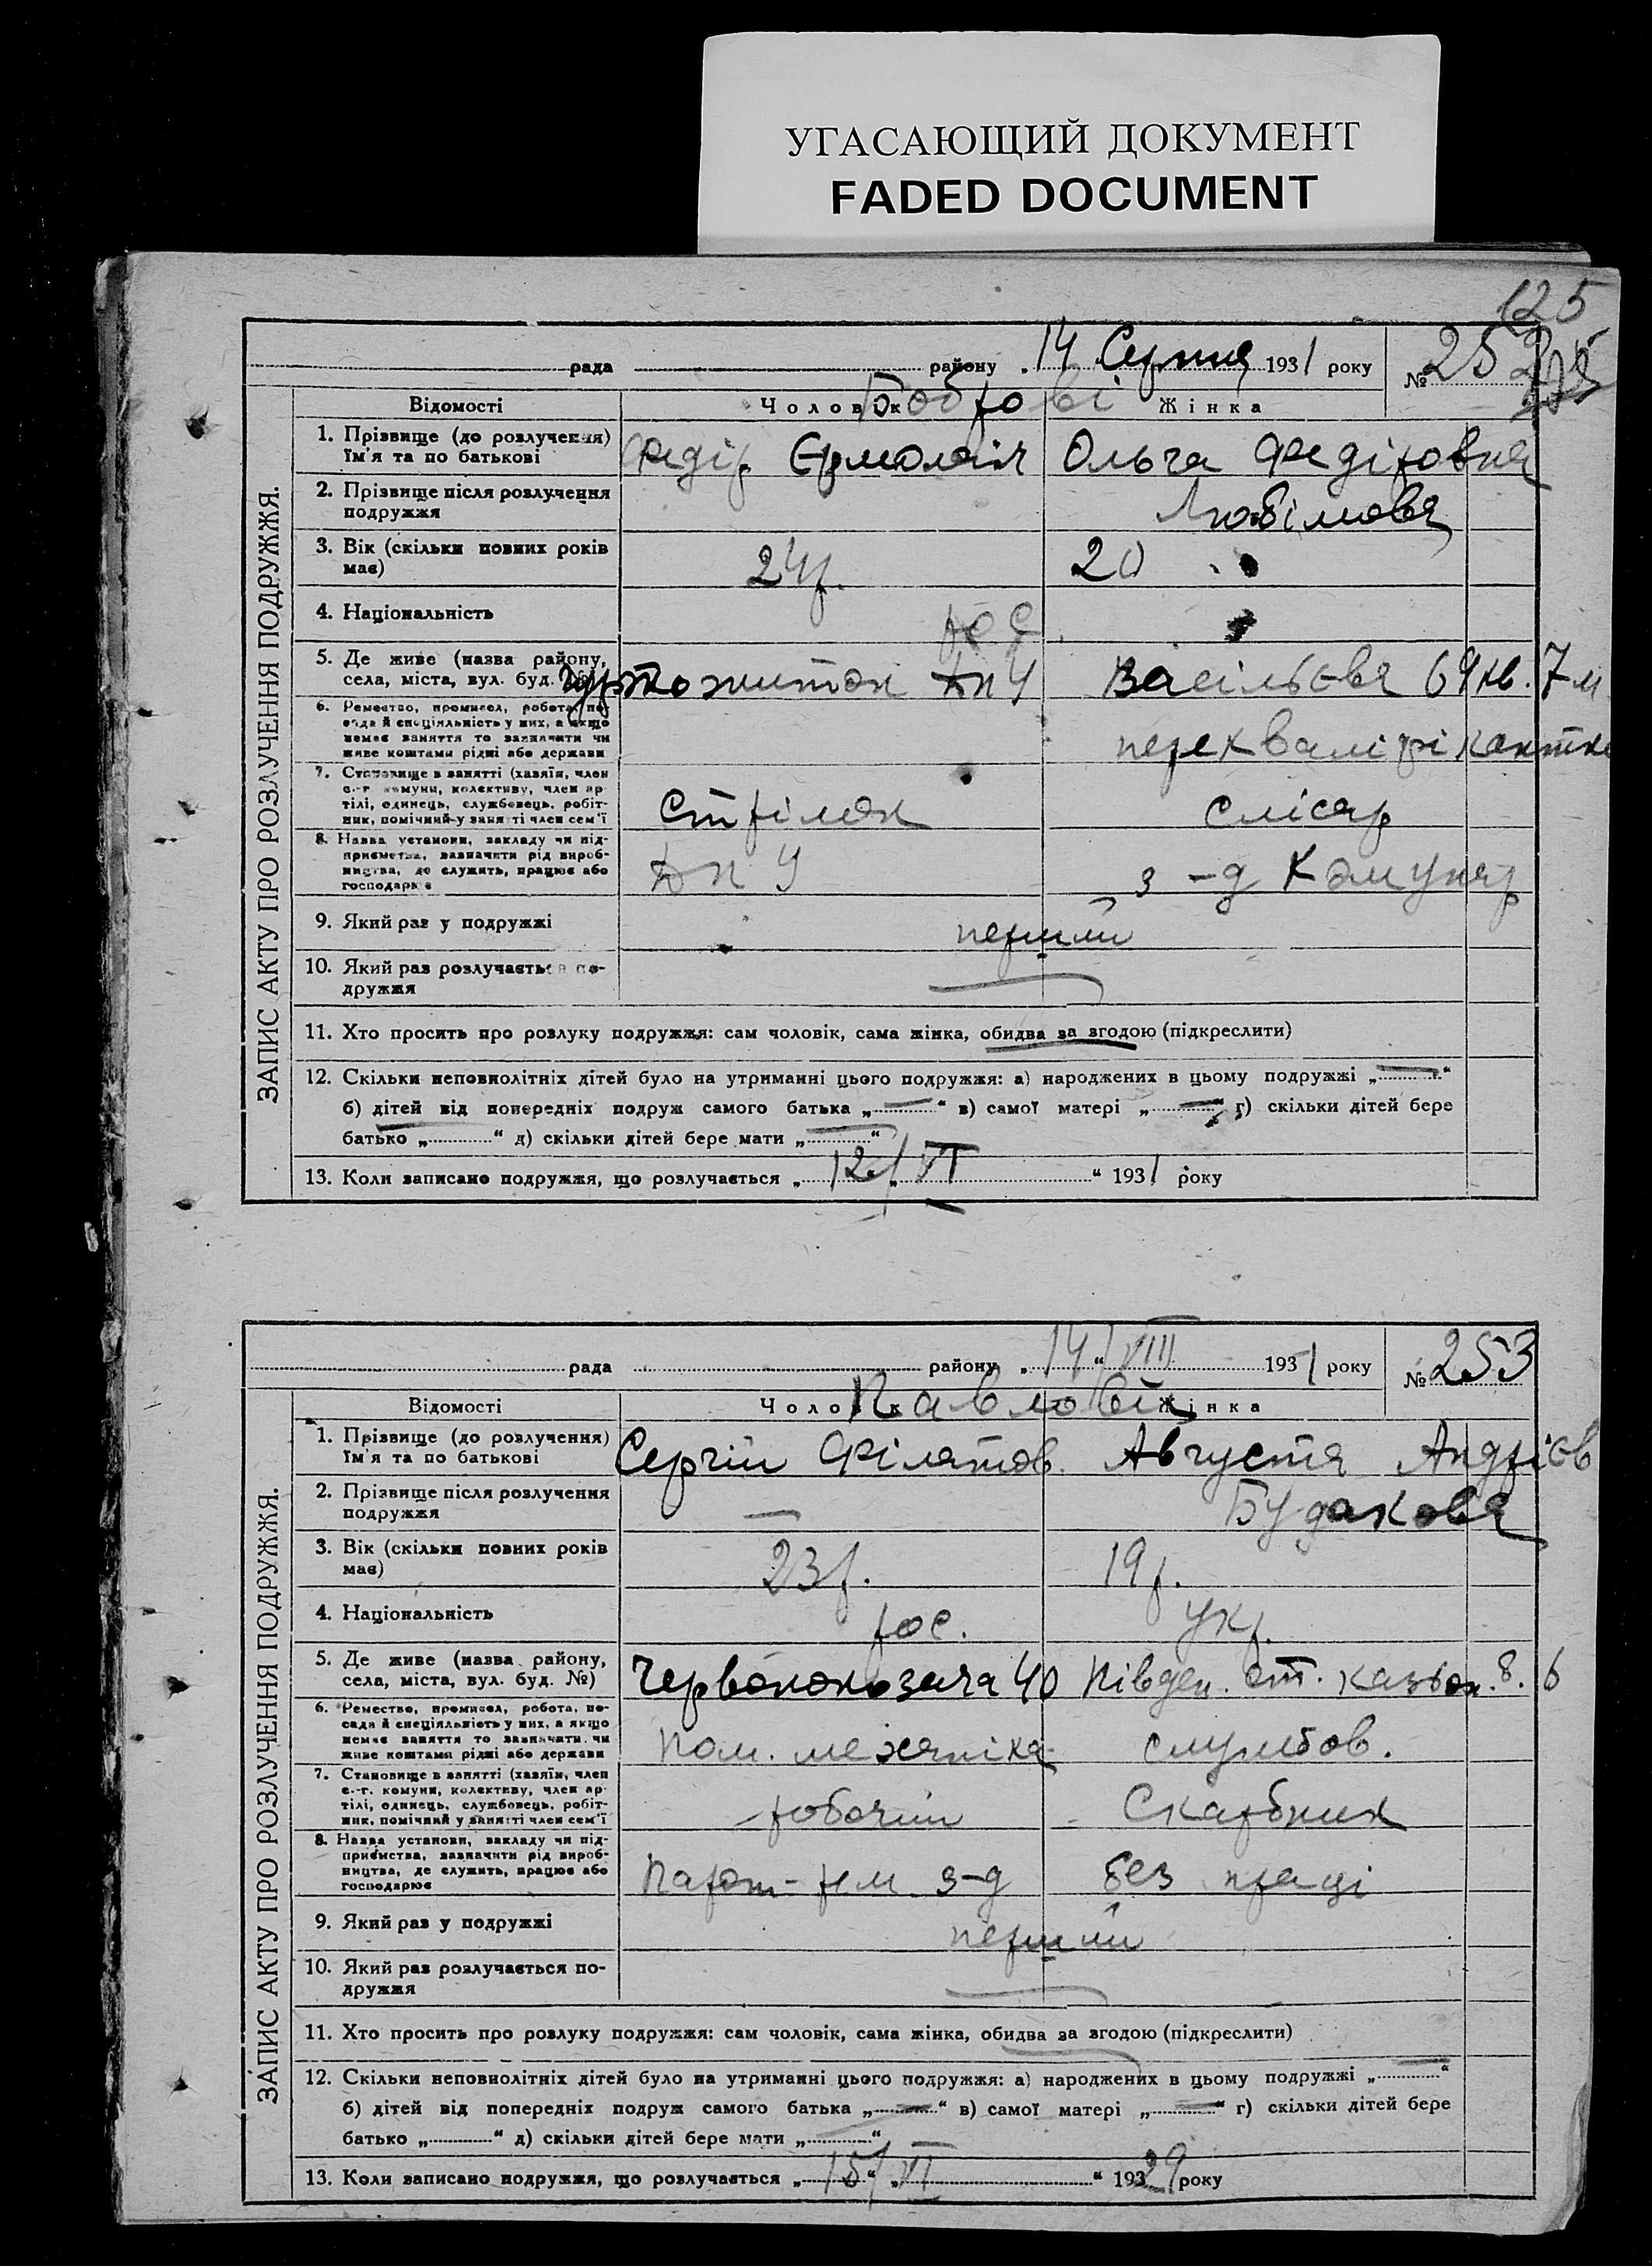 УГАСАЮЩИЙ ДОКУМЕНТ
FADED DOCUMENT
125
рада району „ 14 Серпня 1931 року № 252
ЗАПИС АКТУ ПРО РОЗЛУЧЕННЯ ПОДРУЖЖЯ.
Відомості Чоловік Жінка
Боброві
1. Прізвище (до розлучення) Федір Єрмолаїч Ольга Федіровна
Ім'я та по батькові
2. Прізвище після розлучення Любімова
подружжя
3. Вік (скільки повних років 24 р. 20
має)
4. Національність рос
5. Де живе (назва району, гуртожиток ДПУ Васільєва 69 кв. 7 м
села, міста, вул. буд. №)
6. Ремество, промисел, робота, по-
сада й спеціяльність у них, а якщо
немає заняття то зазначити чи перекваліфікантка
живе коштами рідні або держави
7. Становище в занятті (хазяїн, член
с.-г. комуни, колективу, член ар-
тілі, одинець, службовець, робіт- Стрілок Слісар
ник, помічний у занятті член сем'ї
8. Назва установи, закладу чи під-
приємства, зазначити рід вироб-
ництва, де служить, працює або ДПУ з-д Комунар
господарює
9. Який раз у подружжі перший
10. Який раз розлучається по-
дружжя
11. Хто просить про розлуку подружжя: сам чоловік, сама жінка, обидва за згодою (підкреслити)
12. Скільки неповнолітніх дітей було на утриманні цього подружжя: а) народжених в цьому подружжі „—“
б) дітей від попередніх подруж самого батька „—“ в) самої матері „—“ г) скільки дітей бере
батько „“ д) скільки дітей бере мати „—“
13. Коли записано подружжя, що розлучається „12/VI“ 1931 року
рада району „ 14/VIII 1931 року № 253
ЗАПИС АКТУ ПРО РОЗЛУЧЕННЯ ПОДРУЖЖЯ.
Відомості Чоловік Жінка
Павлович
1. Прізвище (до розлучення) Сергій Філатов. Августа Андрієв
Ім'я та по батькові
2. Прізвище після розлучення — Будакова
подружжя
3. Вік (скільки повних років 23 р. 19 р.
має)
4. Національність рос. укр.
5. Де живе (назва району, Червонокозача 40 Півден. ст. казьон. 8. 6
села, міста, вул. буд. №)
6. Ремество, промисел, робота, по-
сада й спеціяльність у них, а якщо
немає заняття то зазначити чи Пом. механіка службов.
живе коштами рідні або держави
7. Становище в занятті (хазяїн, член
с.-г. комуни, колективу, член ар-
тілі, одинець, службовець, робіт- робочий Скарбник
ник, помічний у занятті член сем'ї
8. Назва установи, закладу чи під-
приємства, зазначити рід вироб-
ництва, де служить, працює або Парот-рем з-д без праці
господарює
9. Який раз у подружжі перший
10. Який раз розлучається по-
дружжя
11. Хто просить про розлуку подружжя: сам чоловік, сама жінка, обидва за згодою (підкреслити)
12. Скільки неповнолітніх дітей було на утриманні цього подружжя: а) народжених в цьому подружжі „—“
б) дітей від попередніх подруж самого батька „—“ в) самої матері „—“ г) скільки дітей бере
батько „“ д) скільки дітей бере мати „“
13. Коли записано подружжя, що розлучається „15/VI“ 19329 року